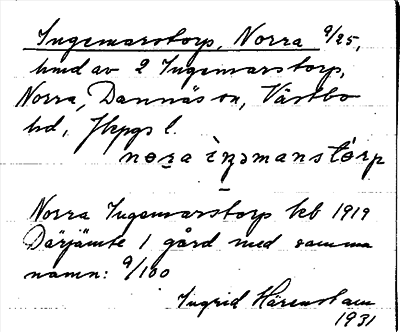 Ingemarstorp, Norra 9/25,
hmd av 2 Ingemarstorp,
Norra, Dannäs sn, Västbo
hd, Jkpgs l.
Norra Ingemarstorp keb 1919
Därjämte 1 gård med samma
namn: 9/100
Ingrid Härenstam
1931